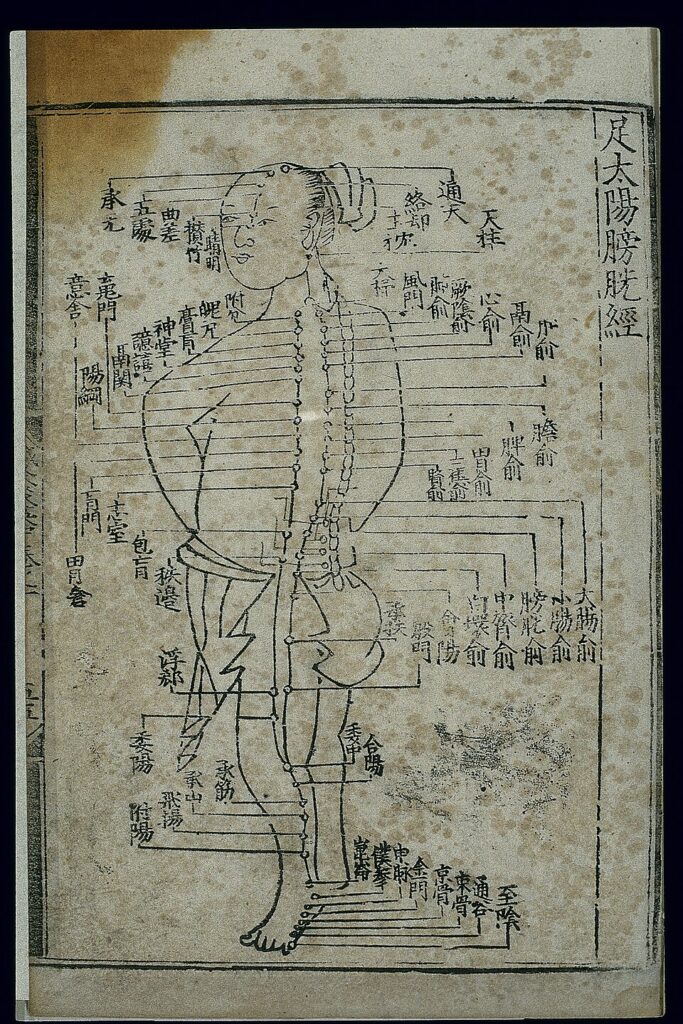 足太陽膀胱經
通天
絡却
天柱
承光
五處
曲差
攢竹
睛明
風門
厥陰俞
心俞
膈俞
肝俞
附分
魄戶
膏肓
神堂
譩譆
膈關
魂門
意舍
陽綱
膽俞
脾俞
胃俞
三焦俞
腎俞
肓門
志室
胃倉
包肓
秩邊
大腸俞
小腸俞
膀胱俞
中膂俞
白環俞
會陽
殷門
浮郄
委陽
委中
合陽
承筋
承山
飛揚
附陽
崑崙
僕參
申脉
金門
京骨
束骨
通谷
至陰